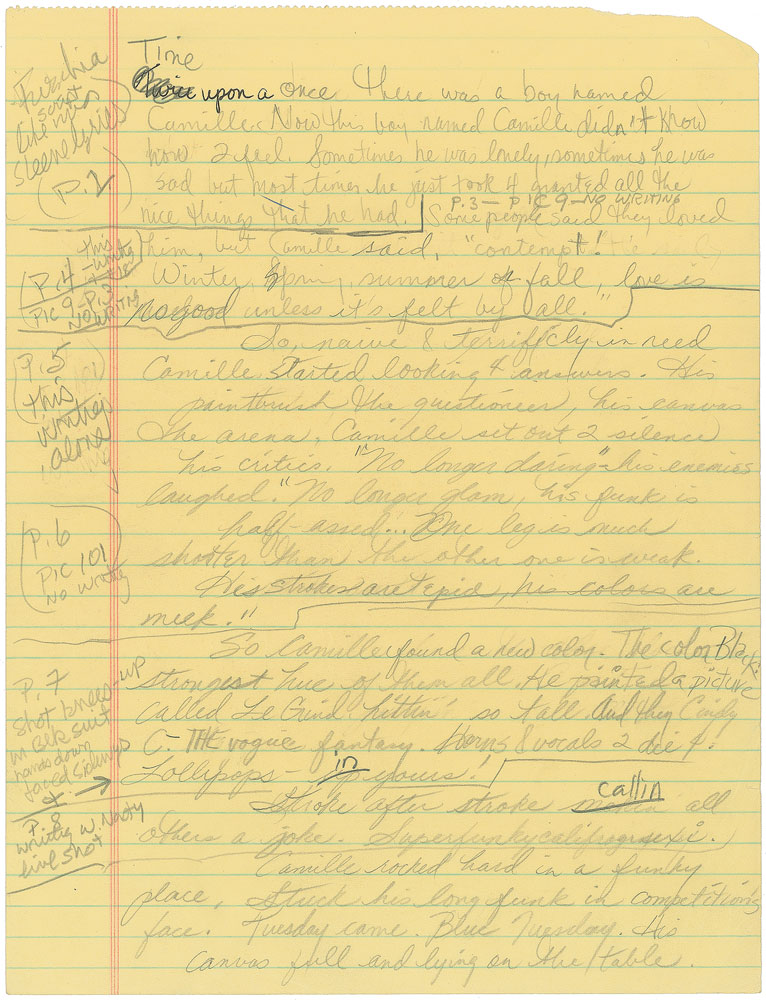 Time
upon a Once there was a boy named
Camille. Now this boy named Camille didn't know
how 2 feel. Sometimes he was lonely, sometimes he was
sad but most times he just took 4 granted all the
P.3 – PIC 9 – NO WRITING
nice things that he had. Some people said they loved
him, but Camille said, "contempt!
Winter, spring, summer or fall, love is
no good unless it's felt by all."
So, naive & terrificly in need
Camille started looking 4 answers. His
paintbrush the questioneer, his canvas
the arena, Camille set out 2 silence
his critics. "No longer daring" – his enemies
laughed. "No longer glam, his funk is
half-assed... One leg is much
shotter than the other one is weak.
His strokes are tepid, his colors are
meek."
So Camille found a new color. The color Black:
strongest hue of them all. He painted a picture
called Le Grind, hittin' so tall. And they Cindy
C. – THE vogue fantasy. Horns & vocals 2 die 4.
in
Lollipops – yours!
callin
Stroke after stroke all
others a joke. Superfunkycalifragisexi.
Camille rocked hard in a funky
place, Stuck his long funk in competition's
face. Tuesday came. Blue Tuesday. His
canvas full and lying on the table.
script
like
sleeve lyrics
P.2
P.4
this
PIC 9 – P.3
NO WRITING
P.5
this
writing
alone
P.6
PIC 101
NO Writing
P.7
shot knees-up
in Blk suit
hands down
faced sideways
P.8
writing w Nasty
live shot